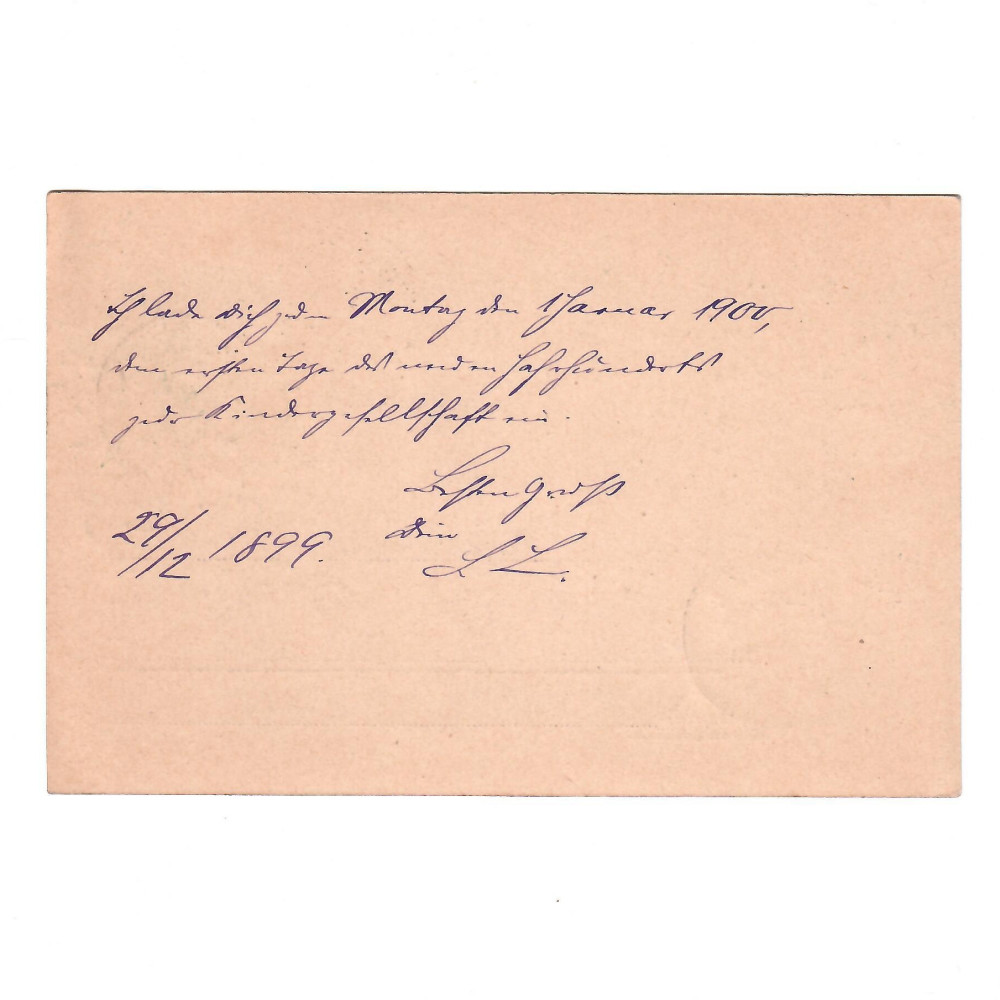 Ich lade Dich zum Montag den 1 Januar 1900,
dem ersten Tage des neuen Jahrhunderts
zur Kindergesellschaft ein.
Besten Gruß
Dein
L L.
29/12 1899.